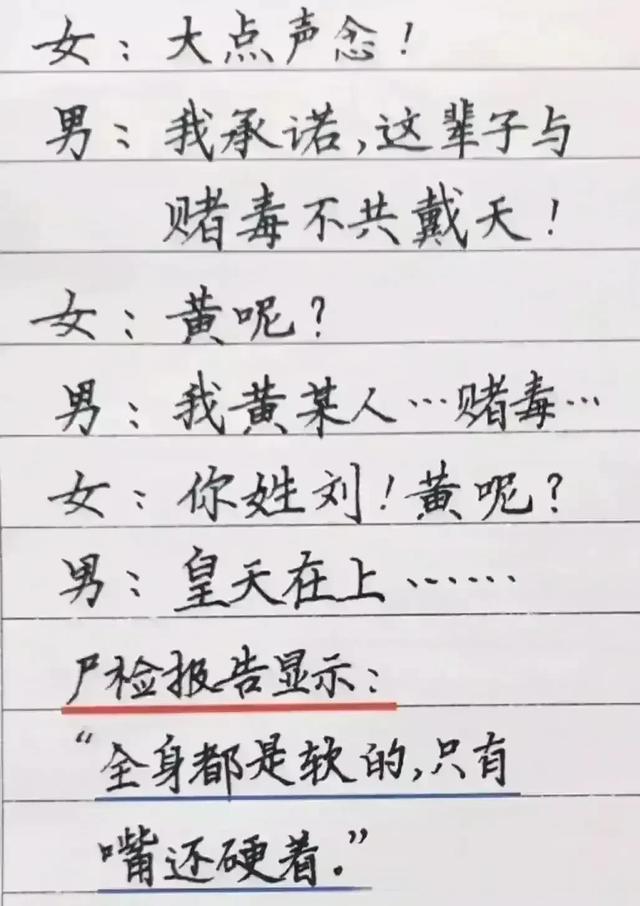 女：大点声念！
男：我承诺，这辈子与
赌毒不共戴天！
女：黄呢？
男：我黄某人…赌毒…
女：你姓刘！黄呢？
男：皇天在上……
尸检报告显示：
“全身都是软的，只有
嘴还硬着。”